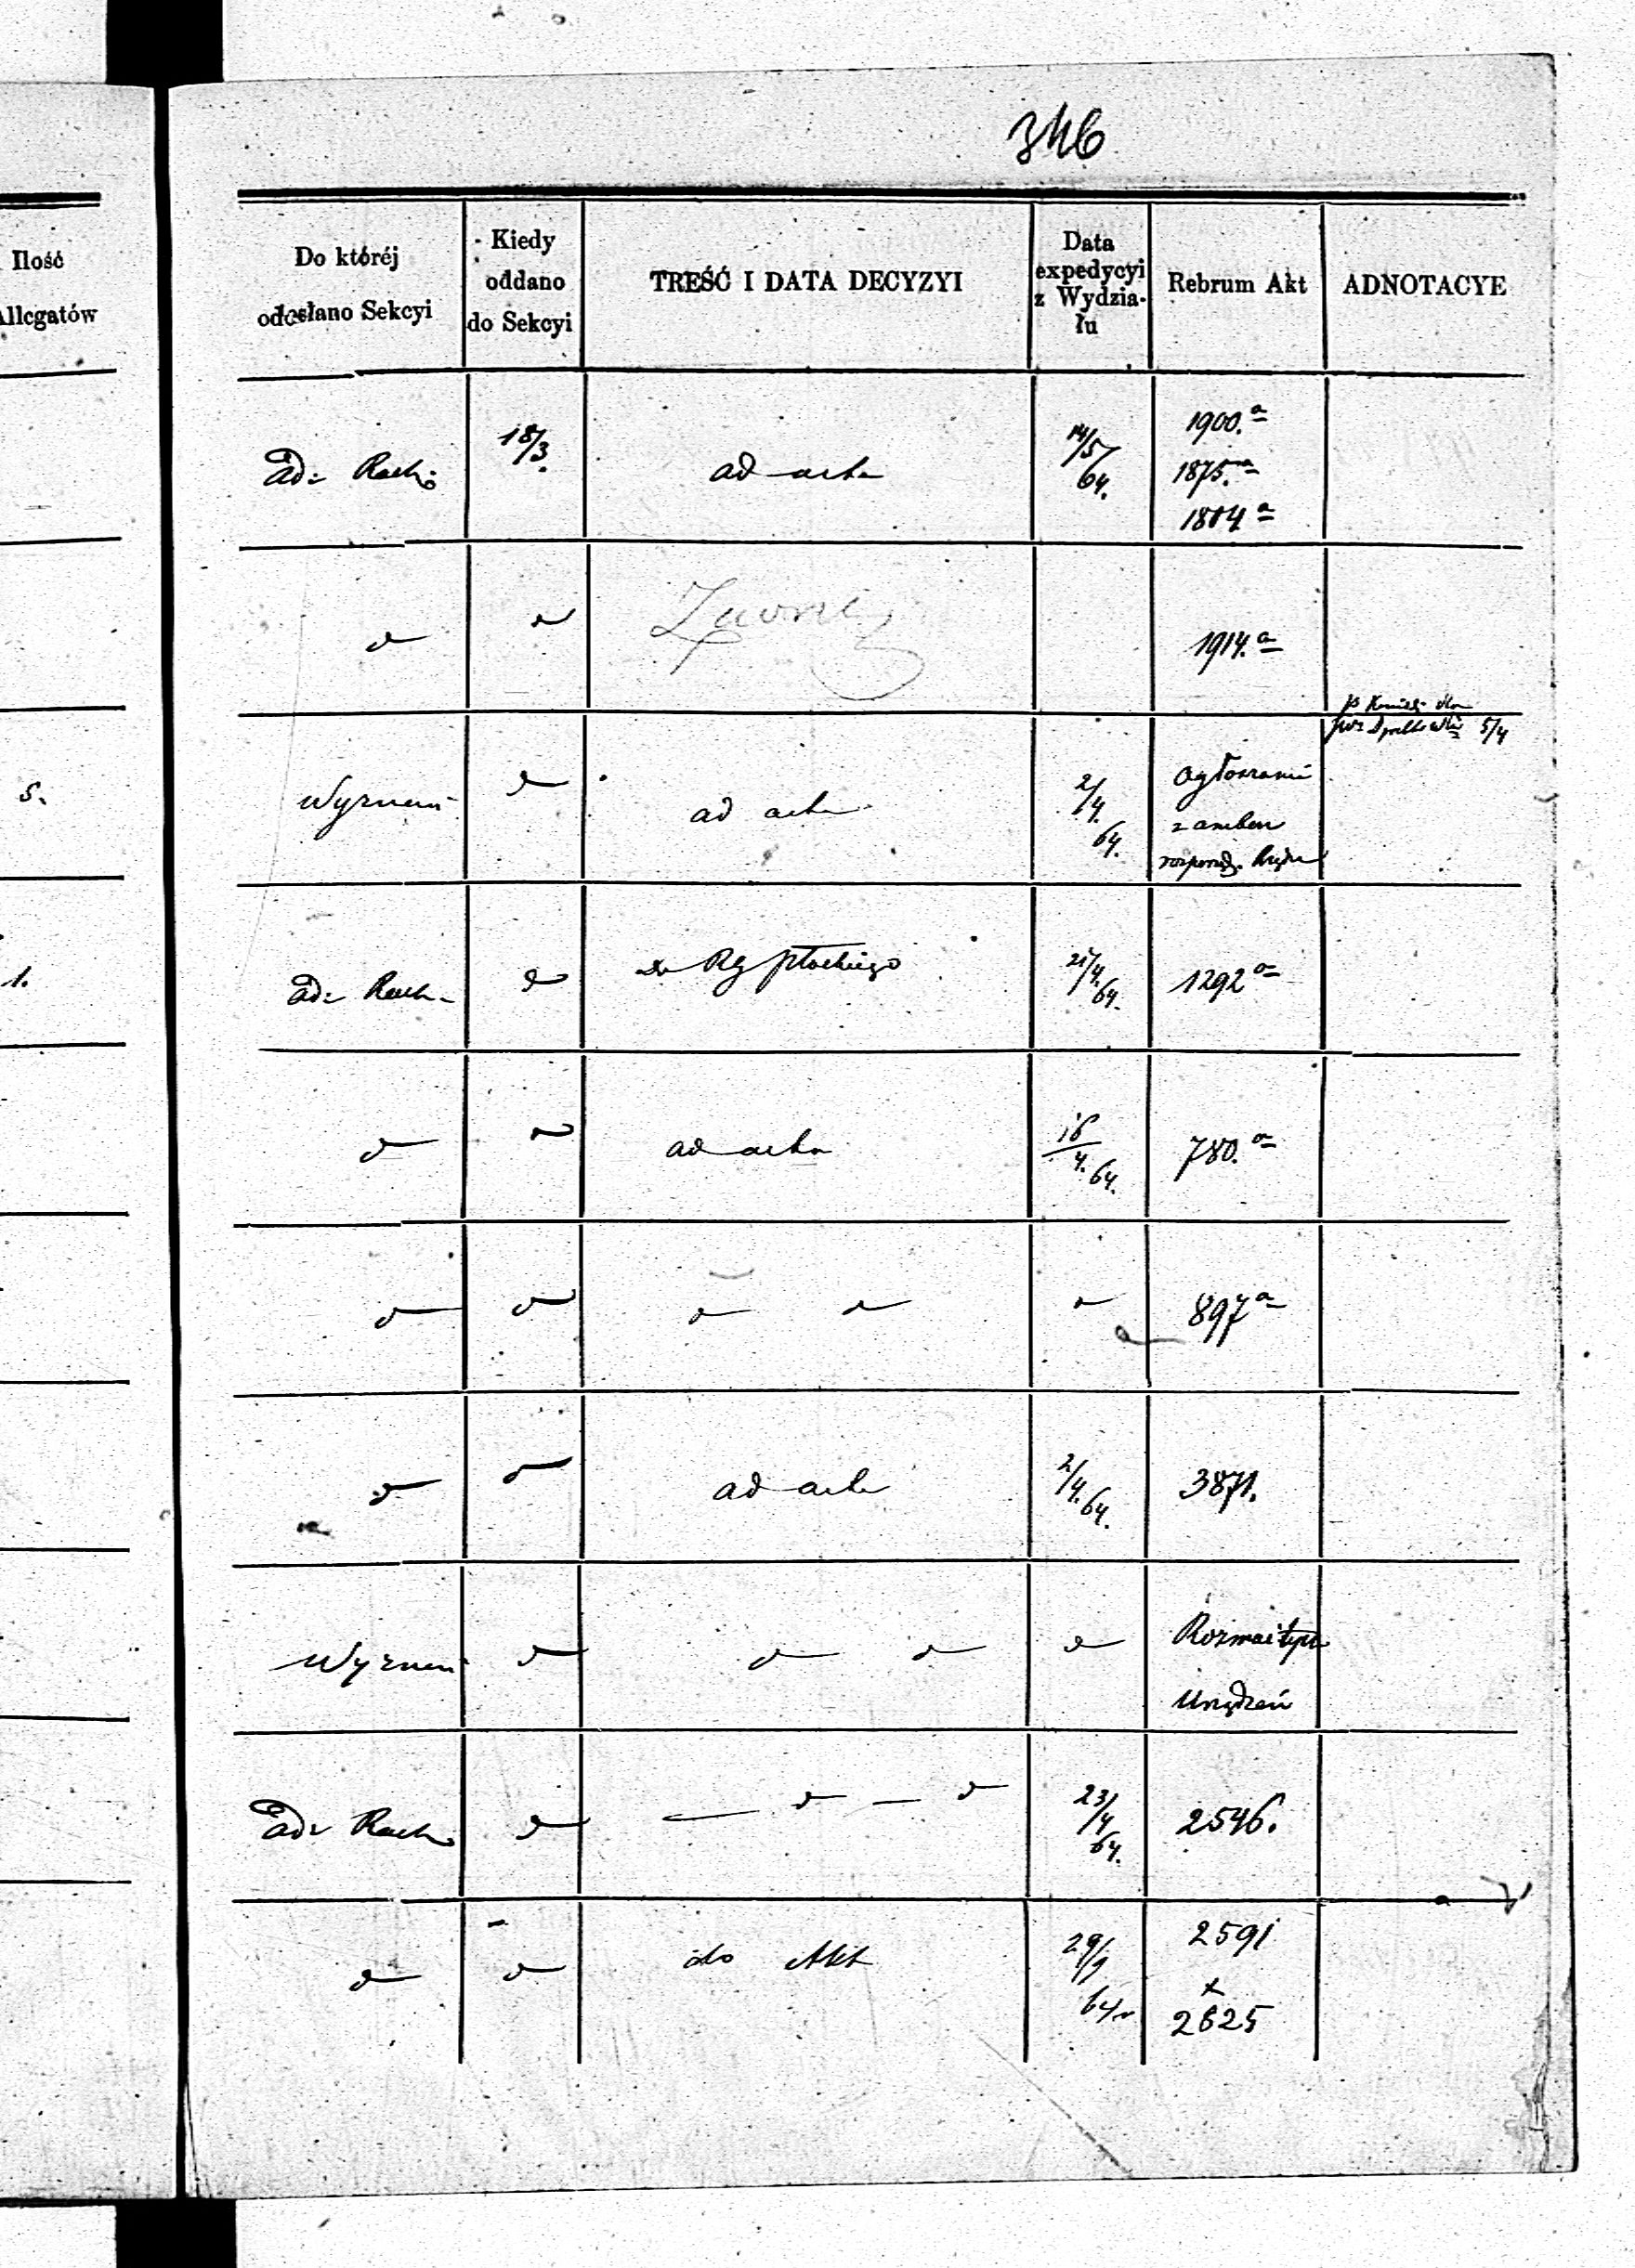 346
Ilość
Allegatów
Do któréj
odesłano Sekcyi
Kiedy
oddano
do Sekcyi
TREŚĆ I DATA DECYZYI
Data
expedycyi
z Wydzia-
łu
Rebrum Akt
ADNOTACYE
ad: Rach:
18/3.
ad acta
14/5
64.
1900.a
1875.a
1804 a
1914.a
5/4
s.
Wyznań
ad acta
2/4.
64.
Ogłoszenie
z ambon
1.
ad: Rach.
do RG Płockiego
21/4.
64.
1292 a
ad acta
16/4. 64.
780. a
897 a
ad acta
2/4. 64.
3871.
Wyznań
Rozmaitych
Urządzeń
ad: Rach.
23/4
64.
2546.
do Akt
29/9
64 r
2591
x
2625